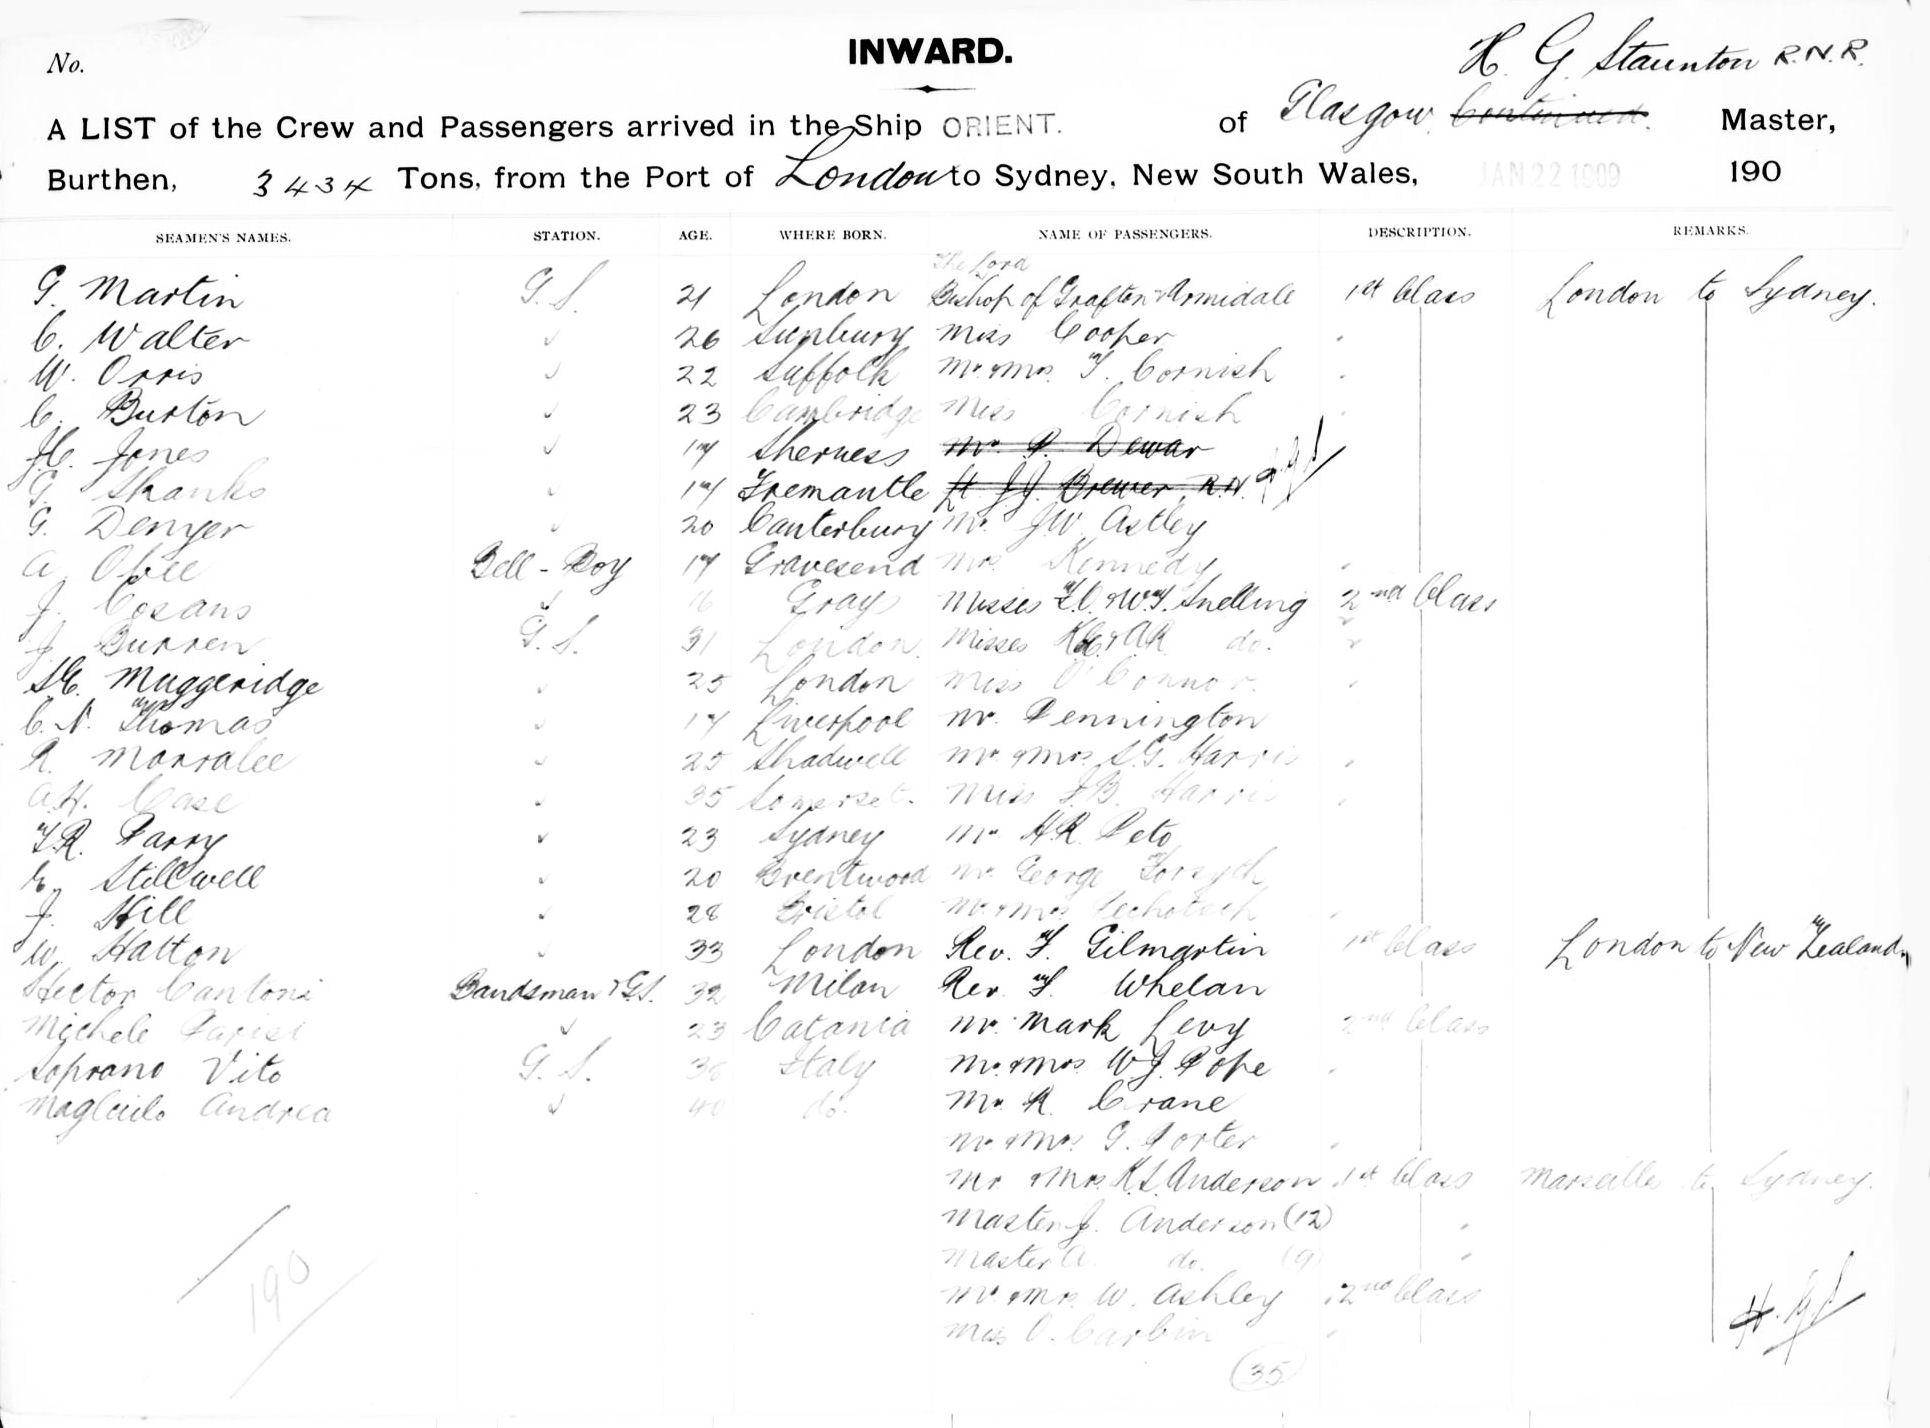 No.
INWARD.
H. G. Staunton R.N.R.
A LIST of the Crew and Passengers arrived in the Ship ORIENT. of Glasgow Continued. Master,
Burthen, 3434 Tons, from the Port of London to Sydney, New South Wales, JAN 22 1909 190
SEAMEN'S NAMES. STATION. AGE. WHERE BORN. NAME OF PASSENGERS. DESCRIPTION. REMARKS.
The Lord
G. Martin G.S. 21 London Bishop of Grafton & Armidale 1st Class London to Sydney.
C. Walter 26 Sunbury Miss Cooper
W. Orris 22 Suffolk Mr. & Mrs. F. Cornish
C. Burton 23 Cambridge Miss Cornish
J.C. Jones 17 Sherness Mr. P. Dewar
G. Shanks 17 Fremantle Lt. J.J. Brewer, R.N.
G. Denyer 20 Canterbury Mr. J.W. Astley
A. Obee Bell-Boy 17 Gravesend Mrs. Kennedy
J. Cosans 16 Grays Misses F.O. & W.F. Snelling 2nd Class
J. Burren G.S. 31 London. Misses & A.R. do.
Muggeridge 25 London Miss O'Connor.
C.N. Thomas 17 Liverpool Mr. Pennington
R. Morralee 25 Shadwell Mr. & Mrs. S.G. Harris
A.H. Case 35 Somerset. Miss J.B. Harris
F.R. Parry 23 Sydney Mr. H.R. Peto
E. Stillwell 20 Brentwood Mr. George Forsyth
J. Hill 28 Bristol Mr. & Mrs.
W. Hatton 33 London Rev. F. Gilmartin 1st Class London to New Zealand.
Hector Cantoni Bandsman & G.S. 32 Milan Rev. F. Whelan
Michele Parisi 23 Catania Mr. Mark Levy 2nd Class
Soprano Vito G.S. 36 Italy Mr. & Mrs. W.J. Pope
Andrea 40 do. Mr. R. Crane
Mr. & Mrs. G. Porter
Mr. & Mrs. K.S. Anderson 1st Class Marseille to Sydney.
Master J. Anderson (12)
Master A. do. (9)
Mr. & Mrs. W. Ashley 2nd Class
Miss O. Carbin
190
35